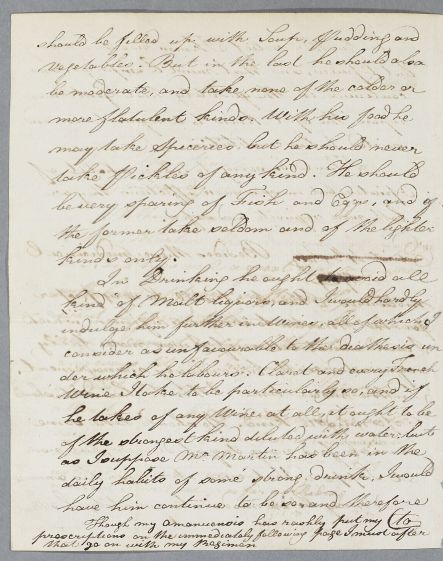 should be filled up with Soup, Pudding and
Vegetables. But in the last he should also
be moderate, and take none of the colder or
more flatulent kinds. With his food he
may take Spiceries but he should never
take Pickles of any kind. He should
be very sparing of Fish and Eggs, and if
the former take seldom and of the lighter
kinds only.
In Drinking he ought avoid all
kind of Malt liquors, and I would hardly
indulge him further in Wines, all of which I
consider as unfavourable to the diathesis un
der which he labours. Claret and every French
Wine I take to be particularly so, and if
he takes of any Wine at all, it ought to be
of the strongest kind diluted with water; but
as I suppose Mr. Martin has been in the
daily habits of some strong drink, I would
have him continue to be so and therefore
Though my amanuensis has rashly put my (to
prescriptions on the immediately following page I must after
that go on with my Regimen